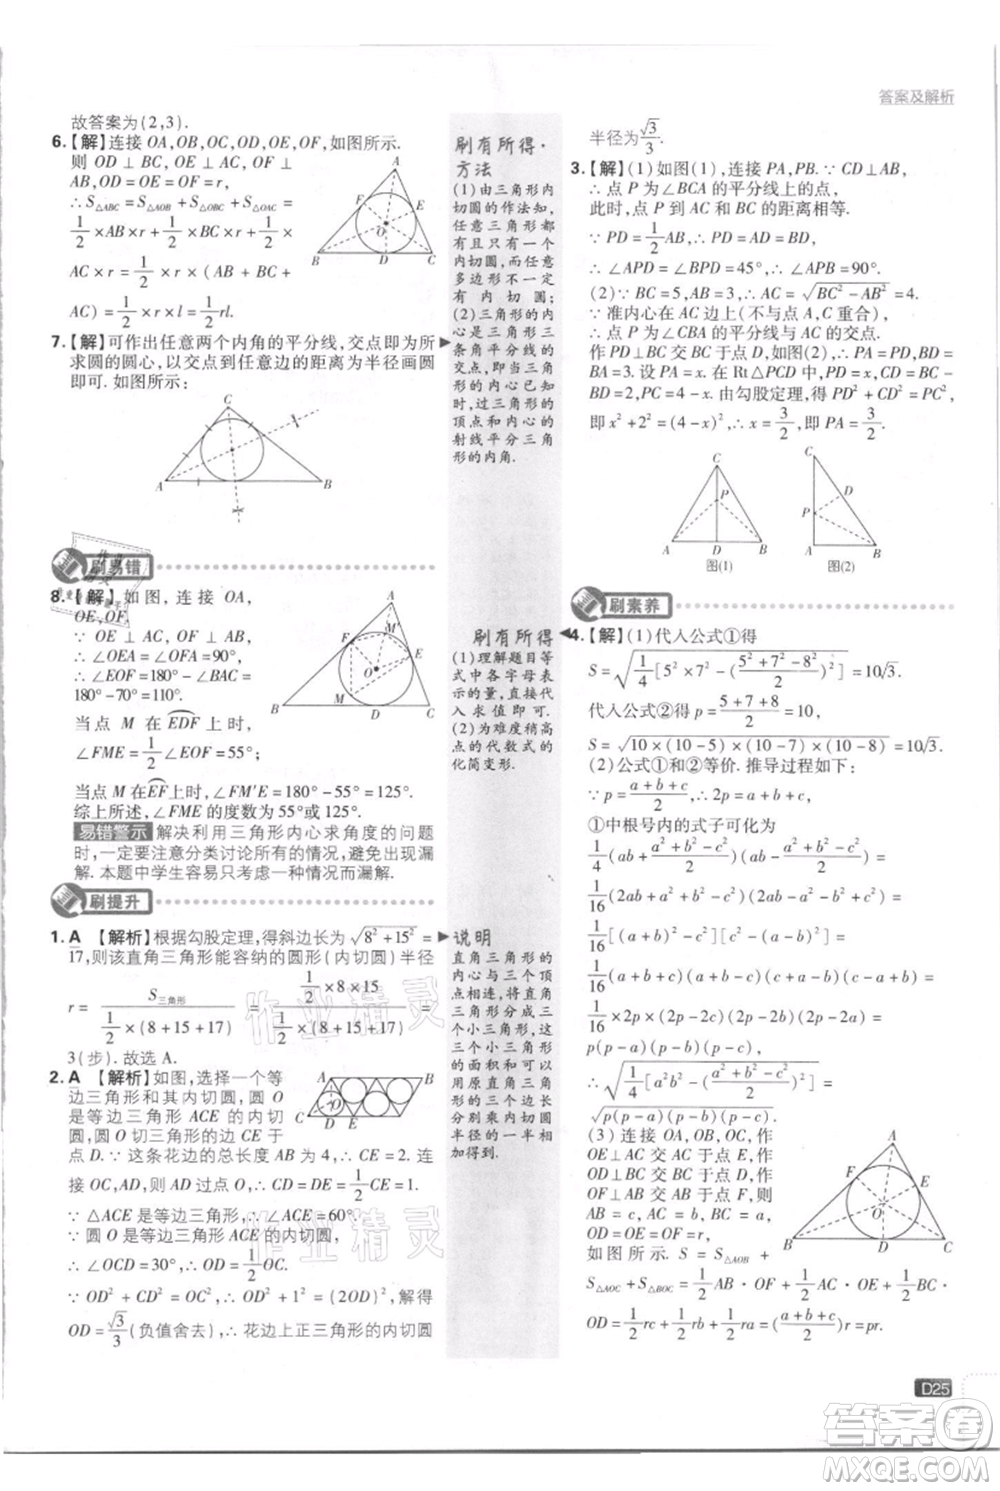 答案及解析
故答案为(2,3).
6.【解】连接 OA,OB,OC,OD,OE,OF,如图所示.
则 OD ⊥ BC, OE ⊥ AC, OF ⊥
AB,OD = OE = OF = r,
∴ S△ABC = S△AOB + S△OBC + S△OAC =
1/2 × AB × r + 1/2 × BC × r + 1/2 ×
AC × r = 1/2 × (AB + BC +
AC) = 1/2 × r × l = 1/2 rl.
A
F
E
O
B
D
C
7.【解】可作出任意两个内角的平分线,交点即为所
求圆的圆心,以交点到任意边的距离为半径画圆
即可. 如图所示:
C
A
B
刷易错
8.【解】如图, 连接 OA,
OE,OF.
∵ OF ⊥ AB, OE ⊥ AC,
∴ ∠OEA = ∠OFA = 90°,
∴ ∠EOF = 180° − ∠BAC =
180° − 70° = 110°.
当点 M 在 EDF 上时,
∠FME = 1/2 ∠EOF = 55°;
当点 M 在EF上时,∠FM′E = 180° − 55° = 125°.
综上所述,∠FME 的度数为 55° 或 125°.
易错警示 解决利用三角形内心求角度的问题
时,一定要注意分类讨论所有的情况,避免出现漏
解. 本题中学生容易只考虑一种情况而漏解.
A
F
M′
E
O
M
B
D
C
刷提升
1. A 【解析】根据勾股定理,得斜边长为 √(8² + 15²) =
17,则该直角三角形能容纳的圆形(内切圆)半径
r = S三角形 / (1/2 × (8 + 15 + 17)) = (1/2 × 8 × 15) / (1/2 × (8 + 15 + 17)) =
3(步). 故选 A.
2. A 【解析】如图,选择一个等
边三角形和其内切圆,圆 O
是等边三角形 ACE 的内切
圆,圆 O 切三角形的边 CE 于
点 D. ∵ 这条花边的总长度为 4,∴ CE = 2. 连接
OC,AD,易知 AD 过点 O,∴ CD = DE = 1/2 CE = 1.
∵ △ACE 是等边三角形,∴ ∠ACE = 60°.
∵ 圆 O 是等边三角形 ACE 的内切圆,
∴ ∠OCD = 30°,∴ OD = 1/2 OC.
∵ OD² + CD² = OC²,∴ OD² + 1² = (2OD)²,解得
OD = √3/3 (负值舍去),∴ 花边上正三角形的内切圆
A
O
C
D
E
刷有所得·
方法
(1)由三角形内
切圆的作法知,
任意三角形都
有 一 个 内 切
圆,而任意
多边形不一定
有 内 切 圆;
(2)三角形的内
心是三角形三
条角平分线的
交点,即当三角
形的内心已知
时,过三角形的
顶点和内心的
射线平分三角
形的内角.
刷有所得
(1)理解题目等
式中各字母表
示的量,直接代
入 求 值 即 可.
(2)为难度稍高
点的代数式的
化简变形.
说明
直角三角形的
内心与三个顶
点相连,将直角
三角形分成三
个小三角形,这
三个小三角形
的面积和可以
用原直角三角
形的三个边长
分别乘内切圆
半径的一半相
加得.
半径为√3/3.
3.【解】(1)如图(1),连接 PA,PB. ∵ CD ⊥ AB,
∴ 点 P 为 ∠BCA 的平分线上的点,
此时,点 P 到 AC 和 BC 的距离相等.
∵ PD = 1/2 AB,∴ PD = AD = BD,
∴ ∠APD = ∠BPD = 45°,∴ ∠APB = 90°.
(2)∵ BC = 5,AB = 3,∴ AC = √(BC² − AB²) = 4.
∵ 准内心在 AC 边上(不与点 A,C 重合),
∴ 点 P 为 ∠CBA 的平分线与 AC 的交点.
作 PD ⊥ BC 交 BC 于点 D,如图(2),∴ PA = PD,BD =
BA = 3. 设 PA = x. 在 Rt△PCD 中,CD = BC −
BD = 2,PC = 4 − x. 由勾股定理,得 PD² + CD² = PC²,
即 x² + 2² = (4 − x)²,∴ x = 3/2,即 PA = 3/2.
C
P
A
D
B
图(1)
C
D
P
A
B
图(2)
刷素养
4.【解】(1)代入公式①得
S = √(1/4[5² × 7² − ((5² + 7² − 8²)/2)²]) = 10√3.
代入公式②得 p = (5 + 7 + 8)/2 = 10,
S = √(10 × (10 − 5) × (10 − 7) × (10 − 8)) = 10√3.
(2)公式①和②等价. 推导过程如下:
∵ p = (a + b + c)/2,∴ 2p = a + b + c,
①中根号内的式子可化为
1/4 (ab + (a² + b² − c²)/2)(ab − (a² + b² − c²)/2) =
1/16 (2ab + a² + b² − c²)(2ab − a² − b² + c²) =
1/16 [(a + b)² − c²][c² − (a − b)²] =
1/16 (a + b + c)(a + b − c)(c + a − b)(c − a + b) =
1/16 × 2p × (2p − 2c)(2p − 2b)(2p − 2a) =
p(p − a)(p − b)(p − c),
∴ √(1/4[a²b² − ((a² + b² − c²)/2)²]) =
√(p(p − a)(p − b)(p − c)).
(3) 连接 OA, OB, OC, 作
OE ⊥ AC 交 AC 于点 E,作
OF ⊥ AB 交 AB 于点 F,作
OD ⊥ BC 交 BC 于点 D,
AB = c, AC = b, BC = a,
如 图 所 示. S = S△AOB +
S△AOC + S△BOC = 1/2 AB · OF + 1/2 AC · OE + 1/2 BC ·
OD = 1/2 rc + 1/2 rb + 1/2 ra = (a + b + c)/2 r = pr.
A
F
E
O
B
D
C
D25
作业精灵
作业精灵
答案卷
MXQE.COM